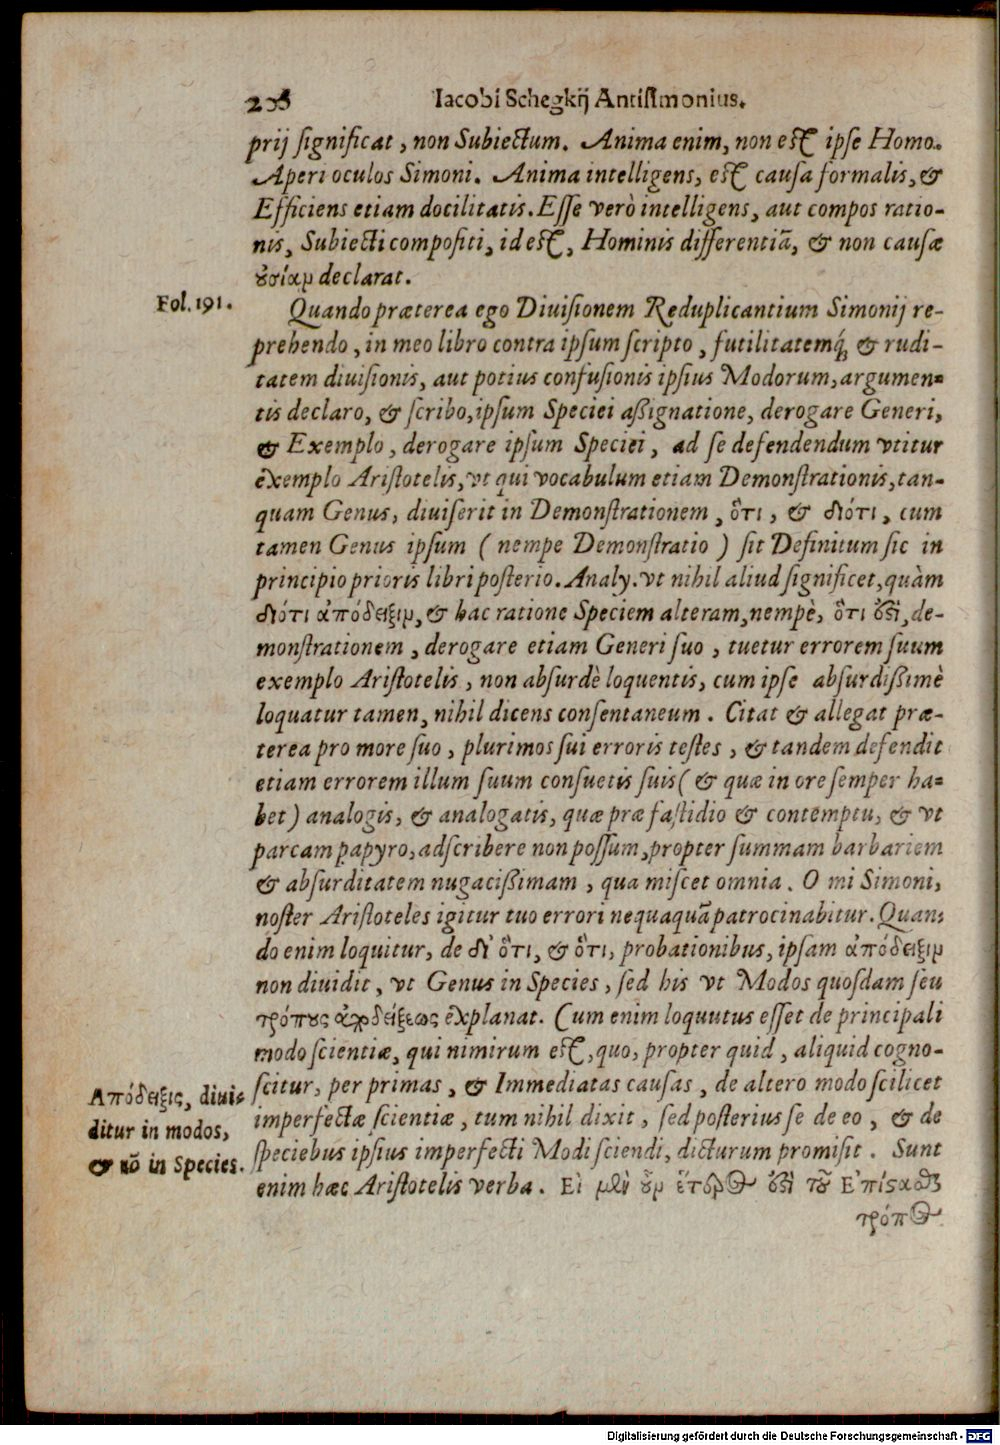 206 Iacobi Schegkij Antisimonius.
prij significat, non Subiectum. Anima enim, non est ipse Homo.
Aperi oculos Simoni. Anima intelligens, est causa formalis, &
Efficiens etiam docilitatis. Esse verò intelligens, aut compos ratio-
nis, Subiecti compositi, id est, Hominis differentiā, & non causæ
ουσίαν declarat.
Fol. 191.
Quando præterea ego Diuisionem Reduplicantium Simonij re-
prehendo, in meo libro contra ipsum scripto, futilitatemq́; & rudi-
tatem diuisionis, aut potius confusionis ipsius Modorum, argumen-
tis declaro, & scribo, ipsum Speciei aßignatione, derogare Generi,
& Exemplo, derogare ipsum Speciei, ad se defendendum vtitur
exemplo Aristotelis, vt qui vocabulum etiam Demonstrationis, tan-
quam Genus, diuiserit in Demonstrationem, ὅτι, & διότι, cum
tamen Genus ipsum ( nempe Demonstratio ) sit Definitum sic in
principio prioris libri posterio. Analy. vt nihil aliud significet, quàm
διότι ἀπόδειξιν, & hac ratione Speciem alteram, nempè, ὅτι ἐστὶ, de-
monstrationem, derogare etiam Generi suo, tuetur errorem suum
exemplo Aristotelis, non absurdè loquentis, cum ipse absurdißimè
loquatur tamen, nihil dicens consentaneum. Citat & allegat præ-
terea pro more suo, plurimos sui erroris testes, & tandem defendit
etiam errorem illum suum consuetis suis ( & quæ in ore semper ha-
bet ) analogis, & analogatis, quæ præ fastidio & contemptu, & vt
parcam papyro, adscribere non possum, propter summam barbariem
& absurditatem nugacißimam, qua miscet omnia. O mi Simoni,
noster Aristoteles igitur tuo errori nequaquā patrocinabitur. Quan-
do enim loquitur, de δι' ὅτι, & ὅτι, probationibus, ipsam ἀπόδειξιν
non diuidit, vt Genus in Species, sed his vt Modos quosdam seu
τρόπους ἀποδείξεως explanat. Cum enim loquutus esset de principali
modo scientiæ, qui nimirum est, quo, propter quid, aliquid cogno-
scitur, per primas, & Immediatas causas, de altero modo scilicet
Απόδειξις, diui-
ditur in modos,
& nō in Species.
imperfectæ scientiæ, tum nihil dixit, sed posterius se de eo, & de
speciebus ipsius imperfecti Modi sciendi, dicturum promisit. Sunt
enim hæc Aristotelis verba. Εἰ μὲν οὖν ἕτερος ἐστὶ τοῦ Ἐπίσταθς
τρόπος